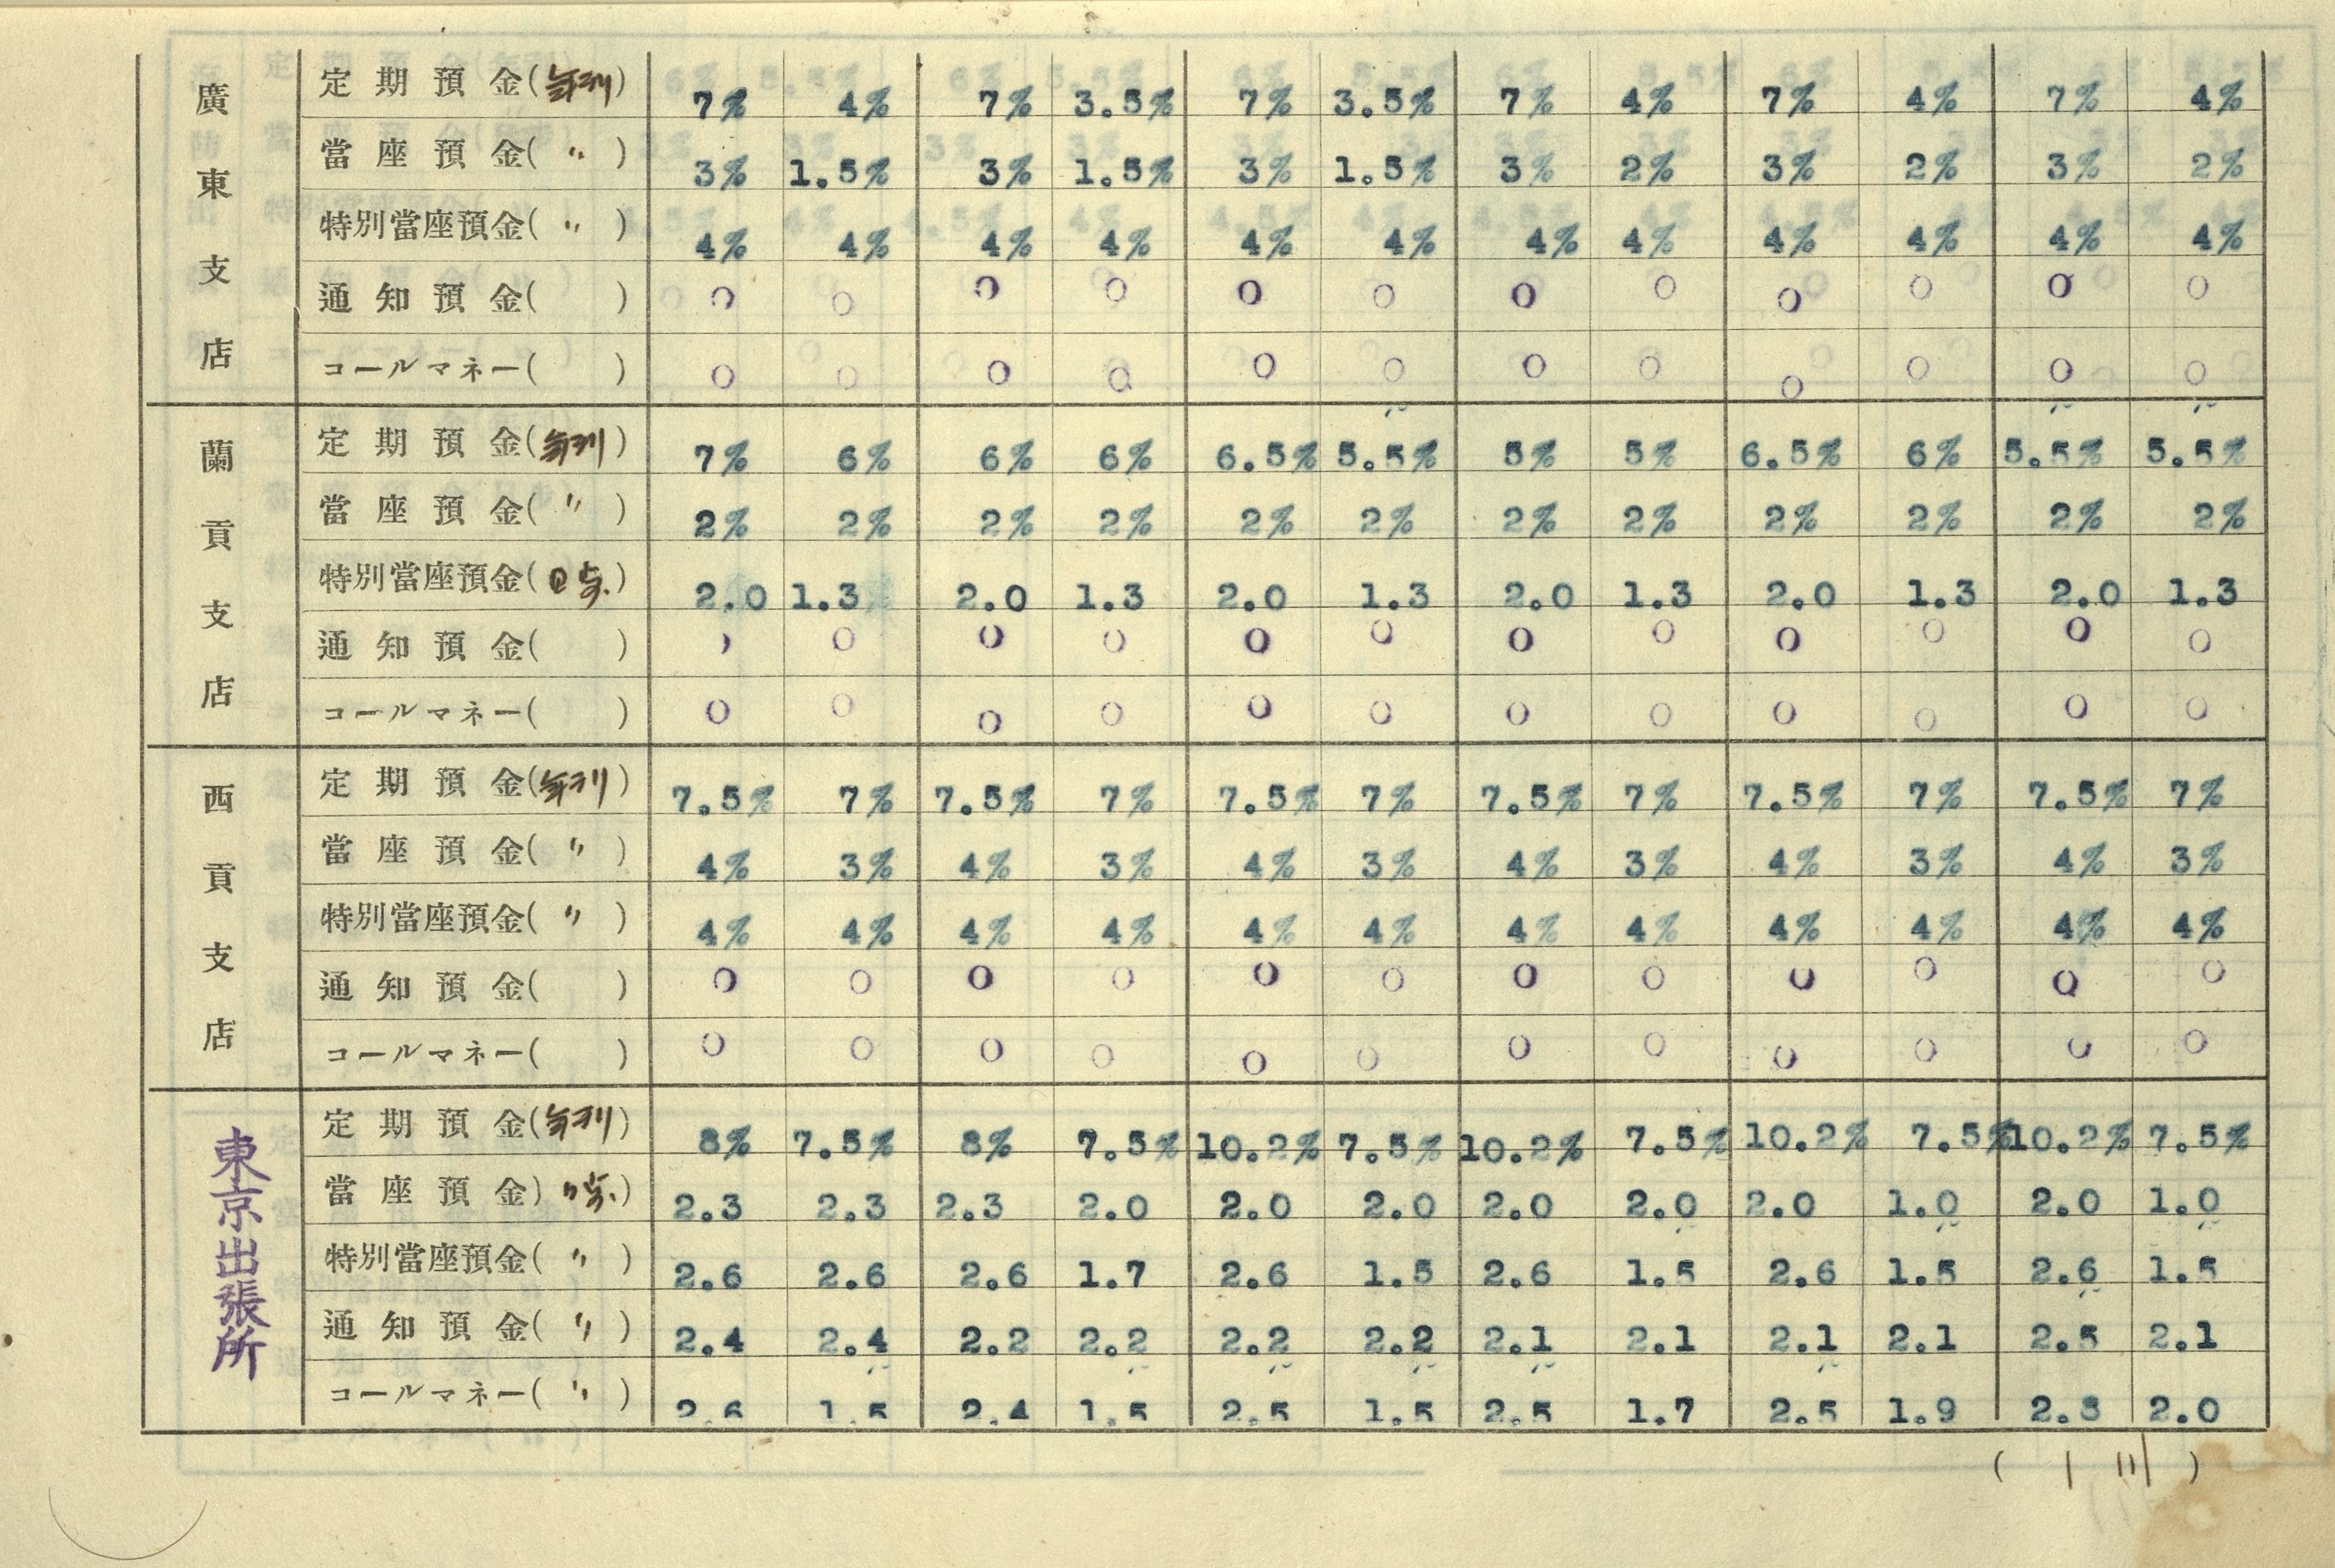 廣東支店
定期預金(年利) 7% 4% 7% 3.5% 7% 3.5% 7% 4% 7% 4% 7% 4%
當座預金( 〃 ) 3% 1.5% 3% 1.5% 3% 1.5% 3% 2% 3% 2% 3% 2%
特別當座預金( 〃 ) 4% 4% 4% 4% 4% 4% 4% 4% 4% 4% 4% 4%
通知預金( ) 0 0 0 0 0 0 0 0 0 0 0 0
コールマネー( ) 0 0 0 0 0 0 0 0 0 0 0 0
蘭貢支店
定期預金(年利) 7% 6% 6% 6% 6.5% 5.5% 5% 5% 6.5% 6% 5.5% 5.5%
當座預金( 〃 ) 2% 2% 2% 2% 2% 2% 2% 2% 2% 2% 2% 2%
特別當座預金(日歩) 2.0 1.3 2.0 1.3 2.0 1.3 2.0 1.3 2.0 1.3 2.0 1.3
通知預金( ) 0 0 0 0 0 0 0 0 0 0 0 0
コールマネー( ) 0 0 0 0 0 0 0 0 0 0 0 0
西貢支店
定期預金(年利) 7.5% 7% 7.5% 7% 7.5% 7% 7.5% 7% 7.5% 7% 7.5% 7%
當座預金( 〃 ) 4% 3% 4% 3% 4% 3% 4% 3% 4% 3% 4% 3%
特別當座預金( 〃 ) 4% 4% 4% 4% 4% 4% 4% 4% 4% 4% 4% 4%
通知預金( ) 0 0 0 0 0 0 0 0 0 0 0 0
コールマネー( ) 0 0 0 0 0 0 0 0 0 0 0 0
東京出張所
定期預金(年利) 8% 7.5% 8% 7.5% 10.2% 7.5% 10.2% 7.5% 10.2% 7.5% 10.2% 7.5%
當座預金(日歩) 2.3 2.3 2.3 2.0 2.0 2.0 2.0 2.0 2.0 1.0 2.0 1.0
特別當座預金( 〃 ) 2.6 2.6 2.6 1.7 2.6 1.5 2.6 1.5 2.6 1.5 2.6 1.5
通知預金( 〃 ) 2.4 2.4 2.2 2.2 2.2 2.2 2.1 2.1 2.1 2.1 2.5 2.1
コールマネー( 〃 ) 2.6 1.5 2.4 1.5 2.5 1.5 2.5 1.7 2.5 1.9 2.8 2.0